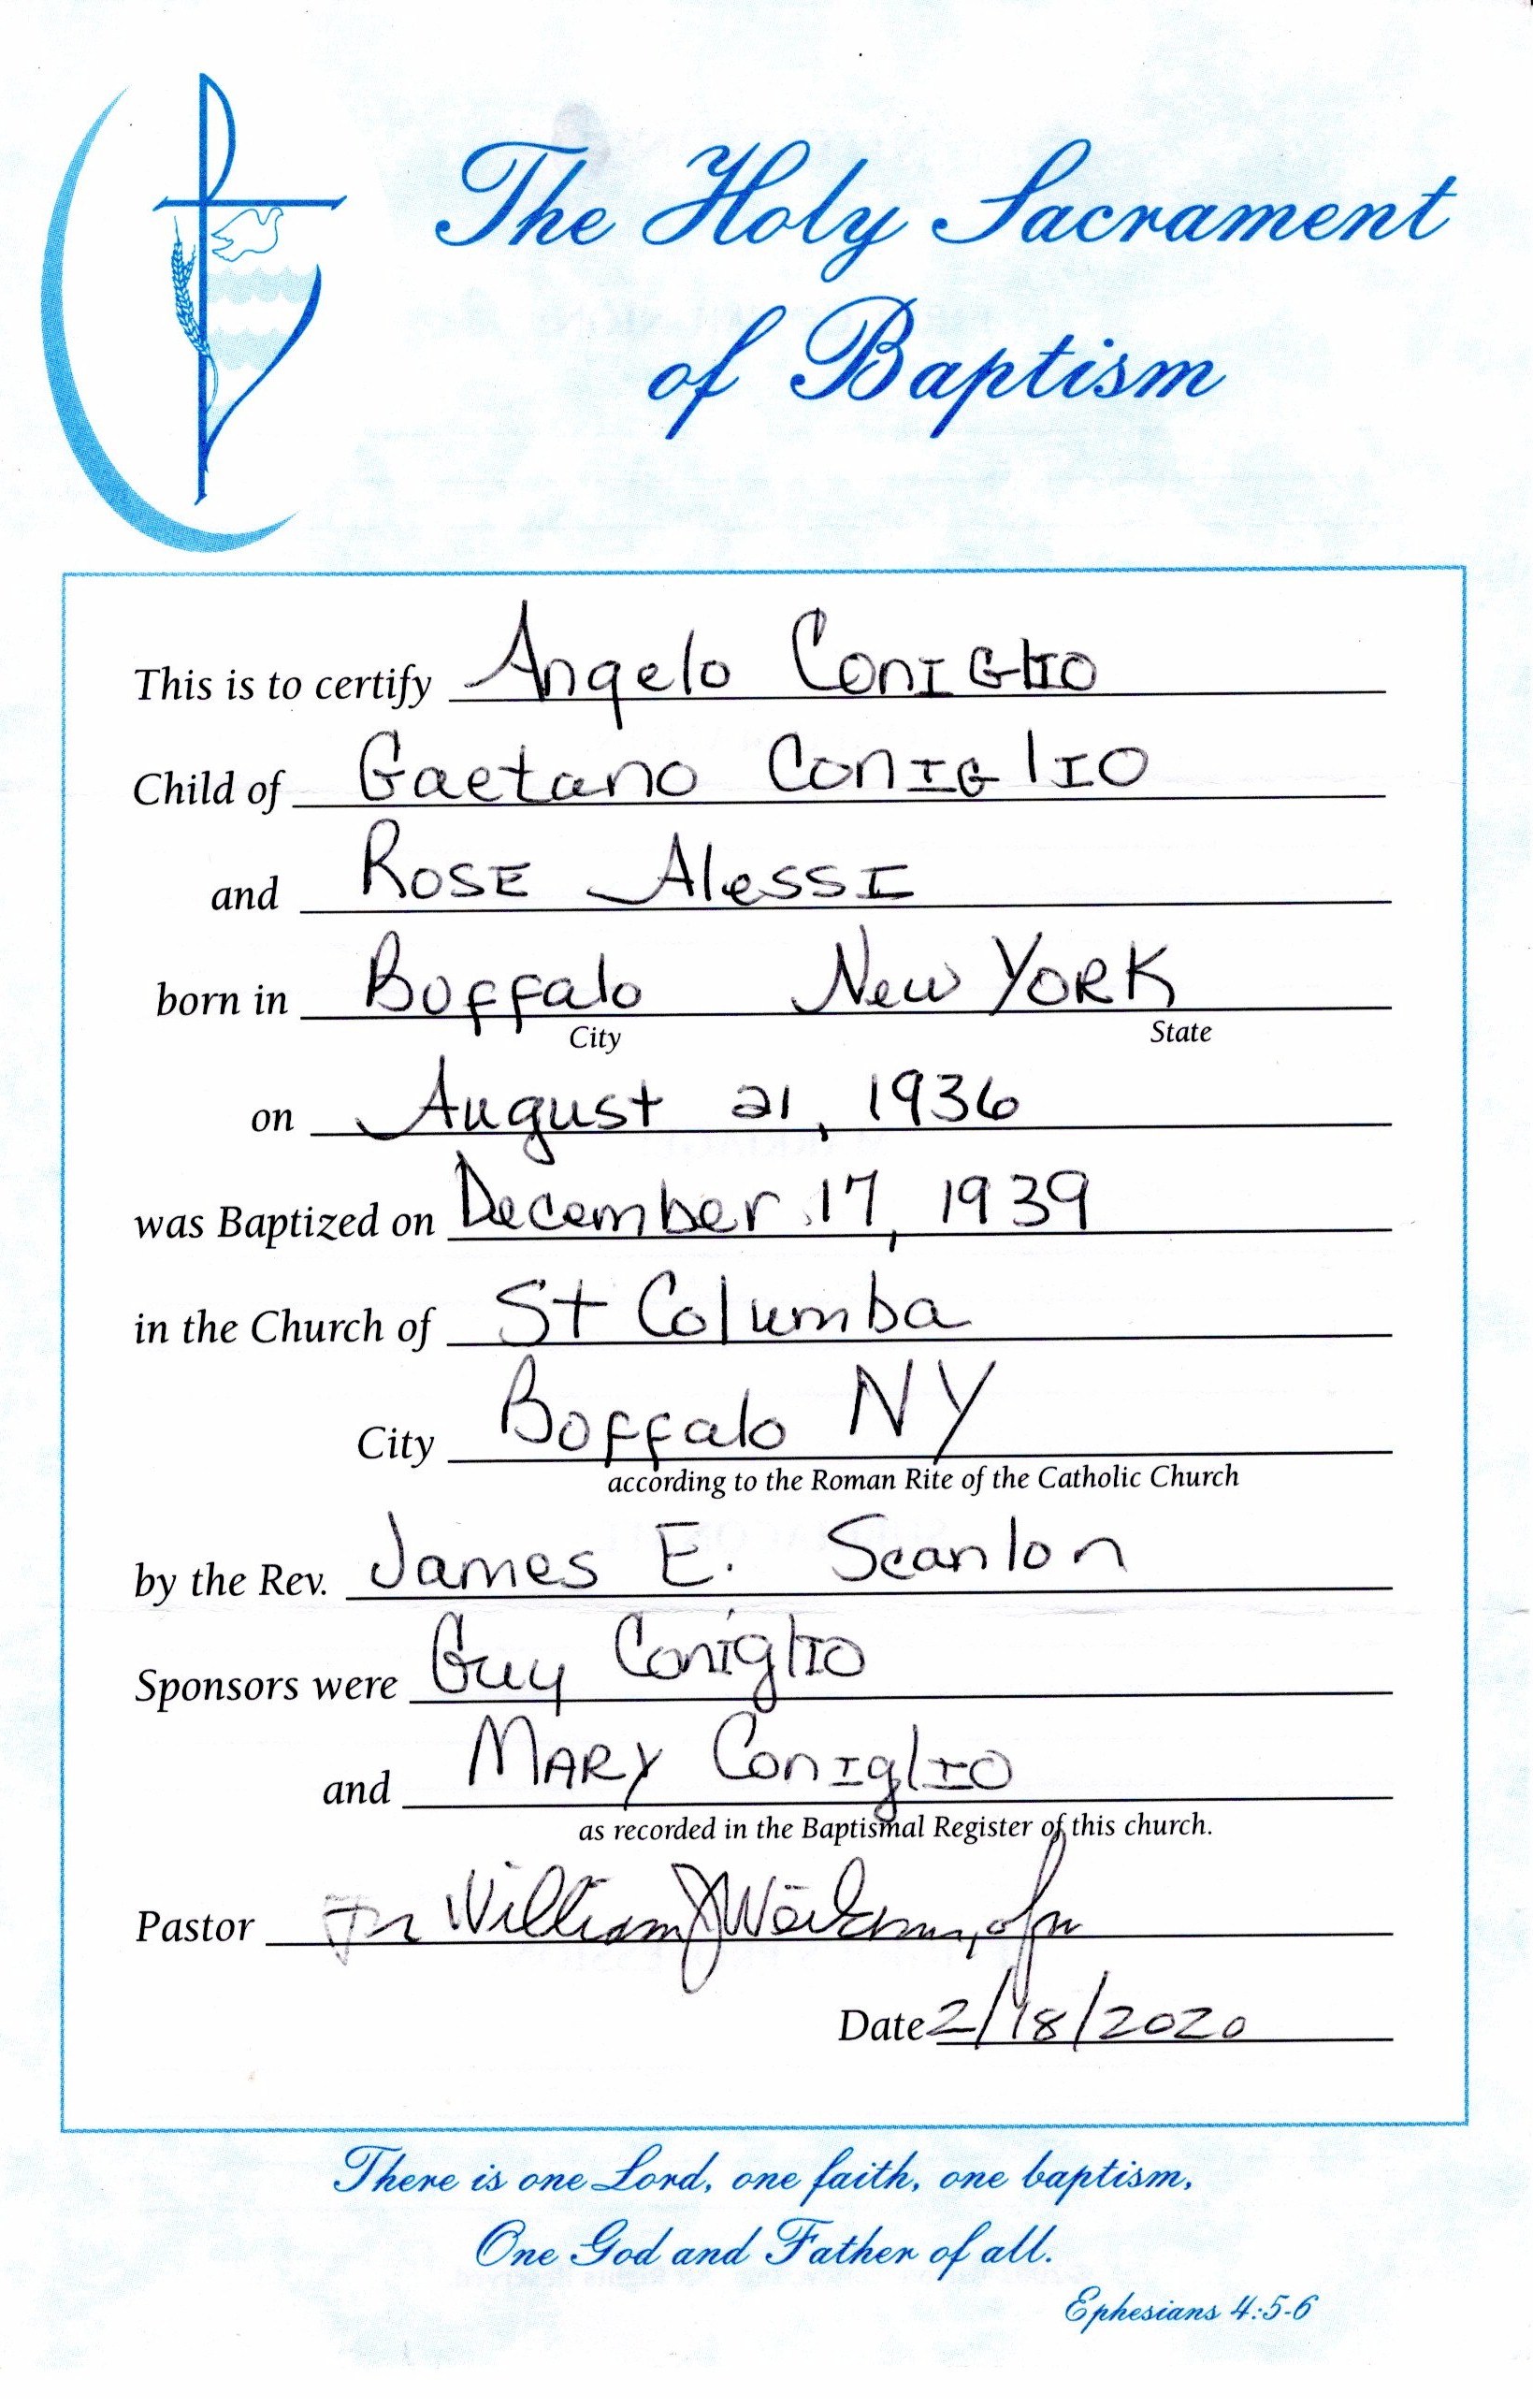 The Holy Sacrament
of Baptism
This is to certify Angelo Coniglio
Child of Gaetano Coniglio
and Rose Alessi
born in Buffalo New York
City State
on August 21, 1936
was Baptized on December 17, 1939
in the Church of St Columba
City Buffalo NY
according to the Roman Rite of the Catholic Church
by the Rev. James E. Scanlon
Sponsors were Guy Coniglio
and Mary Coniglio
as recorded in the Baptismal Register of this church.
Pastor Fr William J
Date 2/18/2020
There is one Lord, one faith, one baptism,
One God and Father of all.
Ephesians 4:5-6